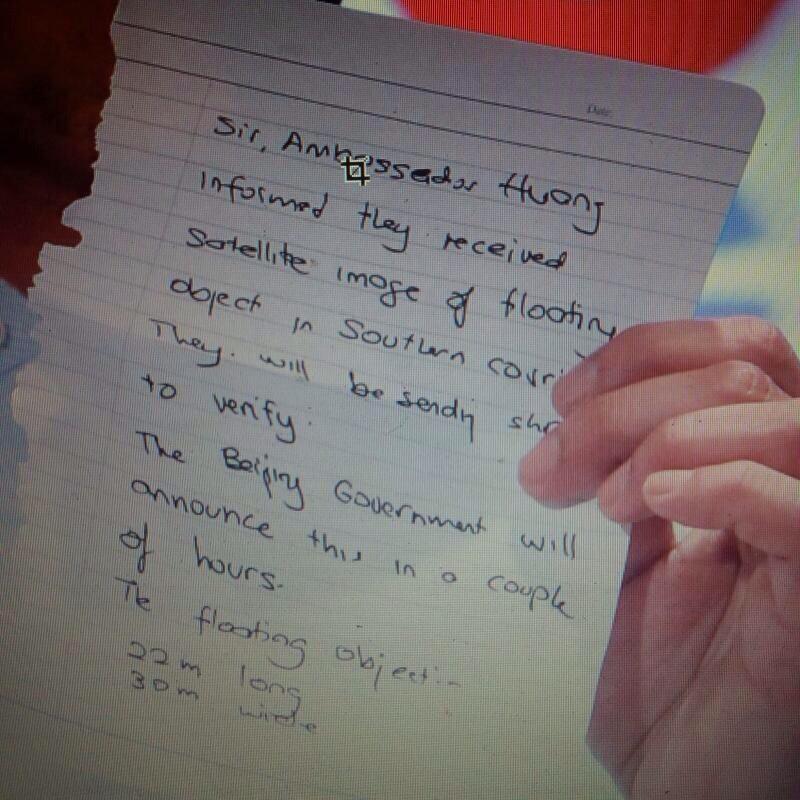 Date
Sir, Ambassador Huang
informed they received
Satellite image of floating
object in Southern corri
They. will be sending
to verify.
The Beijing Government will
announce this in a couple
of hours.
The floating object:-
22m long
30m wide